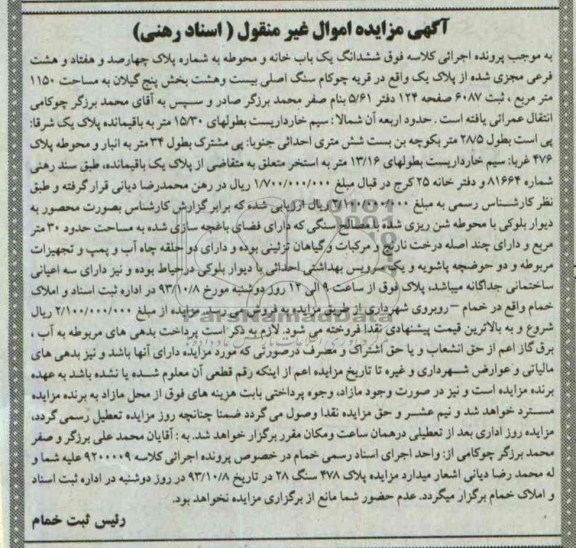 آگهی مزایده اموال غیر منقول ( اسناد رهنی)
به موجب پرونده اجرائی کلاسه فوق ششدانگ یک باب خانه و محوطه به شماره پلاک چهارصد و هفتاد و هشت
فرعی مجزی شده از پلاک یک واقع در قریه چوکام سنگ اصلی بیست وهشت بخش پنج گیلان به مساحت ۱۱۵۰
متر مربع ، ثبت ۶۰۸۷ صفحه ۱۲۴ دفتر ۵/۶۱ بنام صفر محمد برزگر صادر و سپس به آقای محمد برزگر چوکامی
انتقال عمرانی یافته است . حدود اربعه آن شمالا : سیم خارداریست بطولهای ۱۵/۳۰ متر به باقیمانده پلاک یک شرقا:
پی است بطول ۲۸/۵ متر بکوچه بن بست شش متری احداثی جنوبا: پی مشترک بطول ۳۴ متر به انبار و محوطه پلاک
۴۷۶ غربا: سیم خارداریست بطولهای ۱۳/۱۶ متر به استخر متعلق به متقاضی از پلاک یک باقیمانده، طبق سند رهنی
شماره ۸۱۶۶۴ و دفتر خانه ۲۵ کرج در قبال مبلغ ۱/۷۰۰/۰۰۰/۰۰۰ ریال در رهن محمدرضا دیانی قرار گرفته و طبق
نظر کارشناس رسمی به مبلغ ۲/۱۰۰/۰۰۰/۰۰۰ ریال ارزیابی شده که برابر گزارش کارشناس بصورت محصور به
دیوار بلوکی با محوطه شن ریزی شده با مصالح سنگی که دارای فضای باغچه سازی شده به مساحت حدود ۳۰ متر
مربع و دارای چند اصله درخت نارنج و مرکبات و گیاهان تزئینی بوده و دارای دو حلقه چاه آب و پمپ و تجهیزات
مربوطه و دو حوضچه پاشویه و یک سرویس بهداشتی احداثی با دیوار بلوکی درحیاط بوده و نیز دارای سه اعیانی
ساختمانی جداگانه میباشد، پلاک فوق از ساعت ۹ الی ۱۲ روز دوشنبه مورخ ۹۳/۱۰/۸ در اداره ثبت اسناد و املاک
خمام واقع در خمام – روبروی شهرداری از طریق مزایده به فروش میرسد. مزایده از مبلغ ۲/۱۰۰/۰۰۰/۰۰۰ ریال
شروع و به بالاترین قیمت پیشنهادی نقدا فروخته می شود. لازم به ذکر است پرداخت بدهی های مربوطه به آب ،
برق گاز اعم از حق انشعاب و یا حق اشتراک و مصرف درصورتی که مورد مزایده دارای آنها باشد و نیز بدهی های
مالیاتی و عوارض شهرداری و غیره تا تاریخ مزایده اعم از اینکه رقم قطعی آن معلوم شده یا نشده باشد به عهده
برنده مزایده است و نیز در صورت وجود مازاد، وجوه پرداختی بابت هزینه های فوق از محل مازاد به برنده مزایده
مسترد خواهد شد و نیم عشر و حق مزایده نقدا وصول می گردد ضمنا چنانچه روز مزایده تعطیل رسمی گردد،
مزایده روز اداری بعد از تعطیلی درهمان ساعت ومکان مقرر برگزار خواهد شد. به : آقایان محمد علی برزگر و صفر
محمد برزگر چوکامی از: واحد اجرای اسناد رسمی خمام در خصوص پرونده اجرائی کلاسه ۹۲۰۰۰۰۹ علیه شما و
له محمد رضا دیانی اشعار میدارد مزایده پلاک ۴۷۸ سنگ ۲۸ در تاریخ ۹۳/۱۰/۸ در روز دوشنبه در اداره ثبت اسناد
و املاک خمام برگزار میگردد. عدم حضور شما مانع از برگزاری مزایده نخواهد بود.
رئیس ثبت خمام